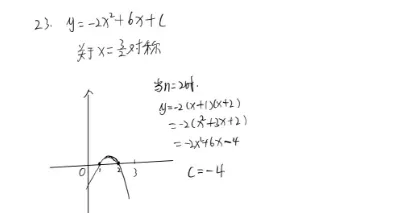 23. y=-2x²+6x+C
关于x=3/2对称
当n=2时.
y=-2(x+1)(x+2)
=-2(x²+3x+2)
=-2x²+6x-4
C=-4
0 1 2 3